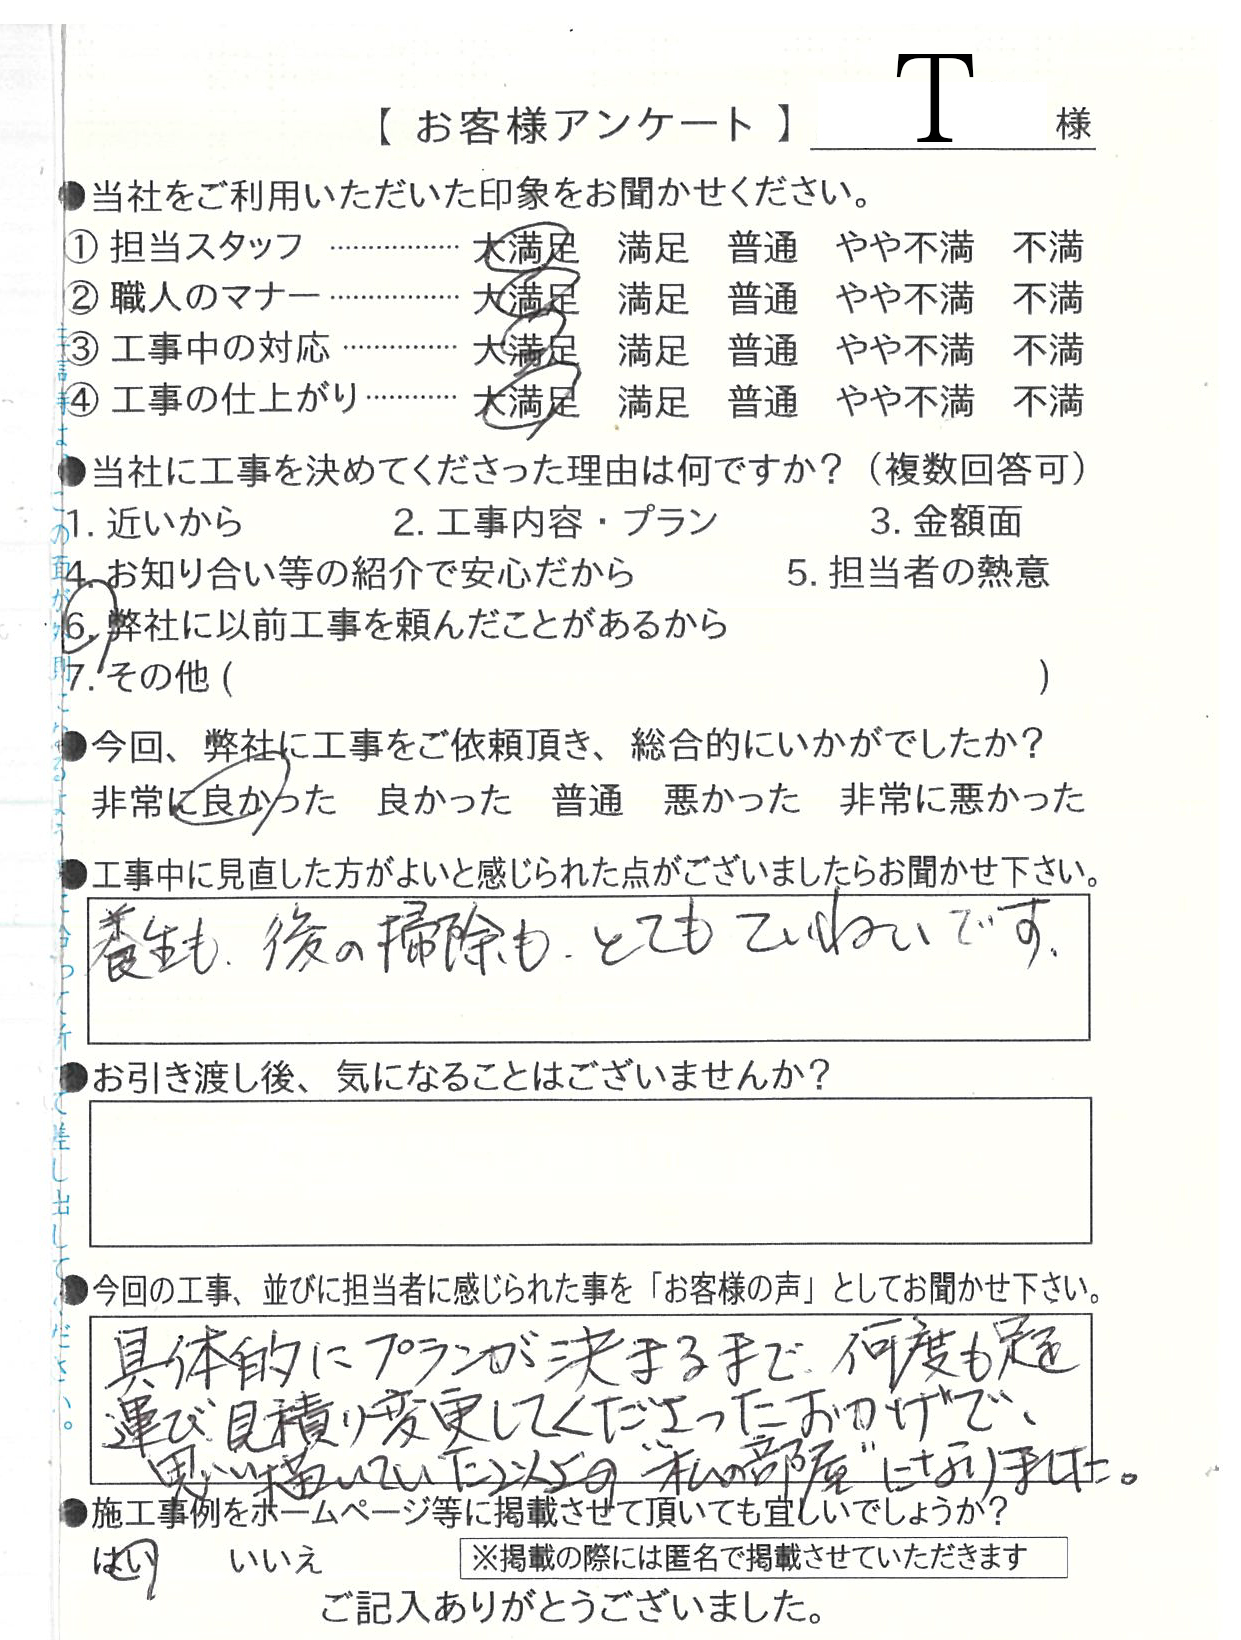 【 お客様アンケート 】 T 様
●当社をご利用いただいた印象をお聞かせください。
① 担当スタッフ ……………… 大満足 満足 普通 やや不満 不満
② 職人のマナー ……………… 大満足 満足 普通 やや不満 不満
③ 工事中の対応 …………… 大満足 満足 普通 やや不満 不満
④ 工事の仕上がり ………… 大満足 満足 普通 やや不満 不満
●当社に工事を決めてくださった理由は何ですか？（複数回答可）
1. 近いから 2. 工事内容・プラン 3. 金額面
4. お知り合い等の紹介で安心だから 5. 担当者の熱意
6. 弊社に以前工事を頼んだことがあるから
7. その他 ( )
●今回、弊社に工事をご依頼頂き、総合的にいかがでしたか？
非常に良かった 良かった 普通 悪かった 非常に悪かった
●工事中に見直した方がよいと感じられた点がございましたらお聞かせ下さい。
養生も、後の掃除も、とてもていねいです、
●お引き渡し後、気になることはございませんか？
●今回の工事、並びに担当者に感じられた事を「お客様の声」としてお聞かせ下さい。
具体的にプランが決まるまで、何度も足を
運び見積り変更してくださったおかげで、
思い描いていた以上の“私の部屋”になりました。
●施工事例をホームページ等に掲載させて頂いても宜しいでしょうか？
はい いいえ ※掲載の際には匿名で掲載させていただきます
ご記入ありがとうございました。